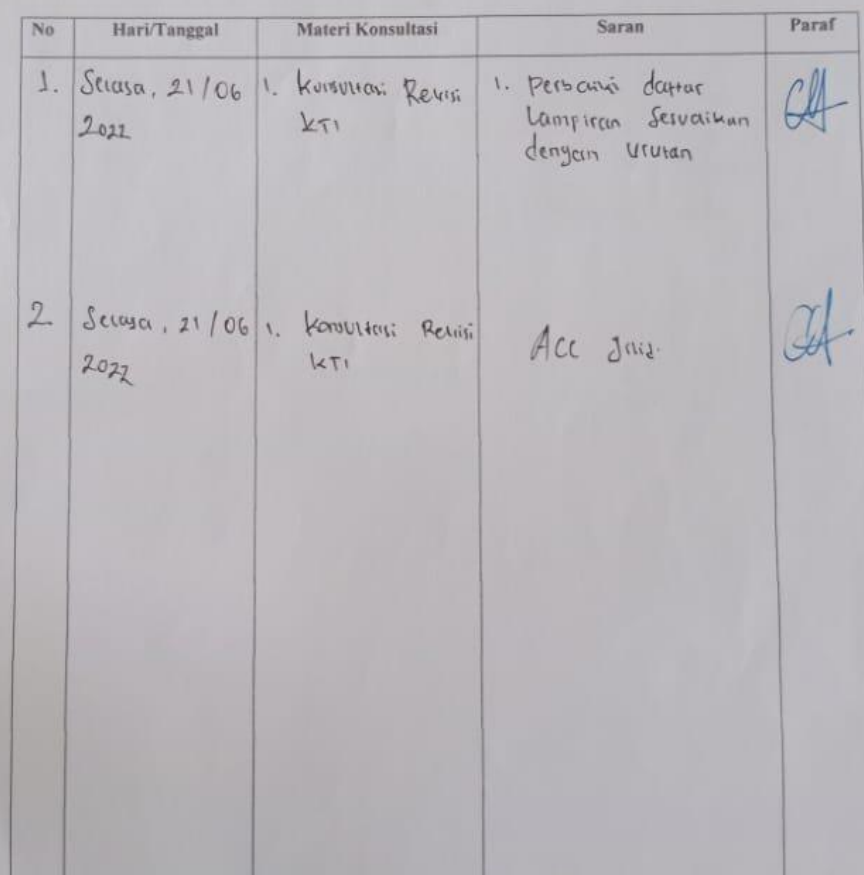 No Hari/Tanggal Materi Konsultasi Saran Paraf
1. Selasa, 21/06 1. Konsultasi Revisi 1. Perbaiki daftar
2022 KTI Lampiran Sesuaikan
dengan Urutan
2 Selasa, 21/06 1. Konsultasi Revisi
2022 KTI Acc Jilid.